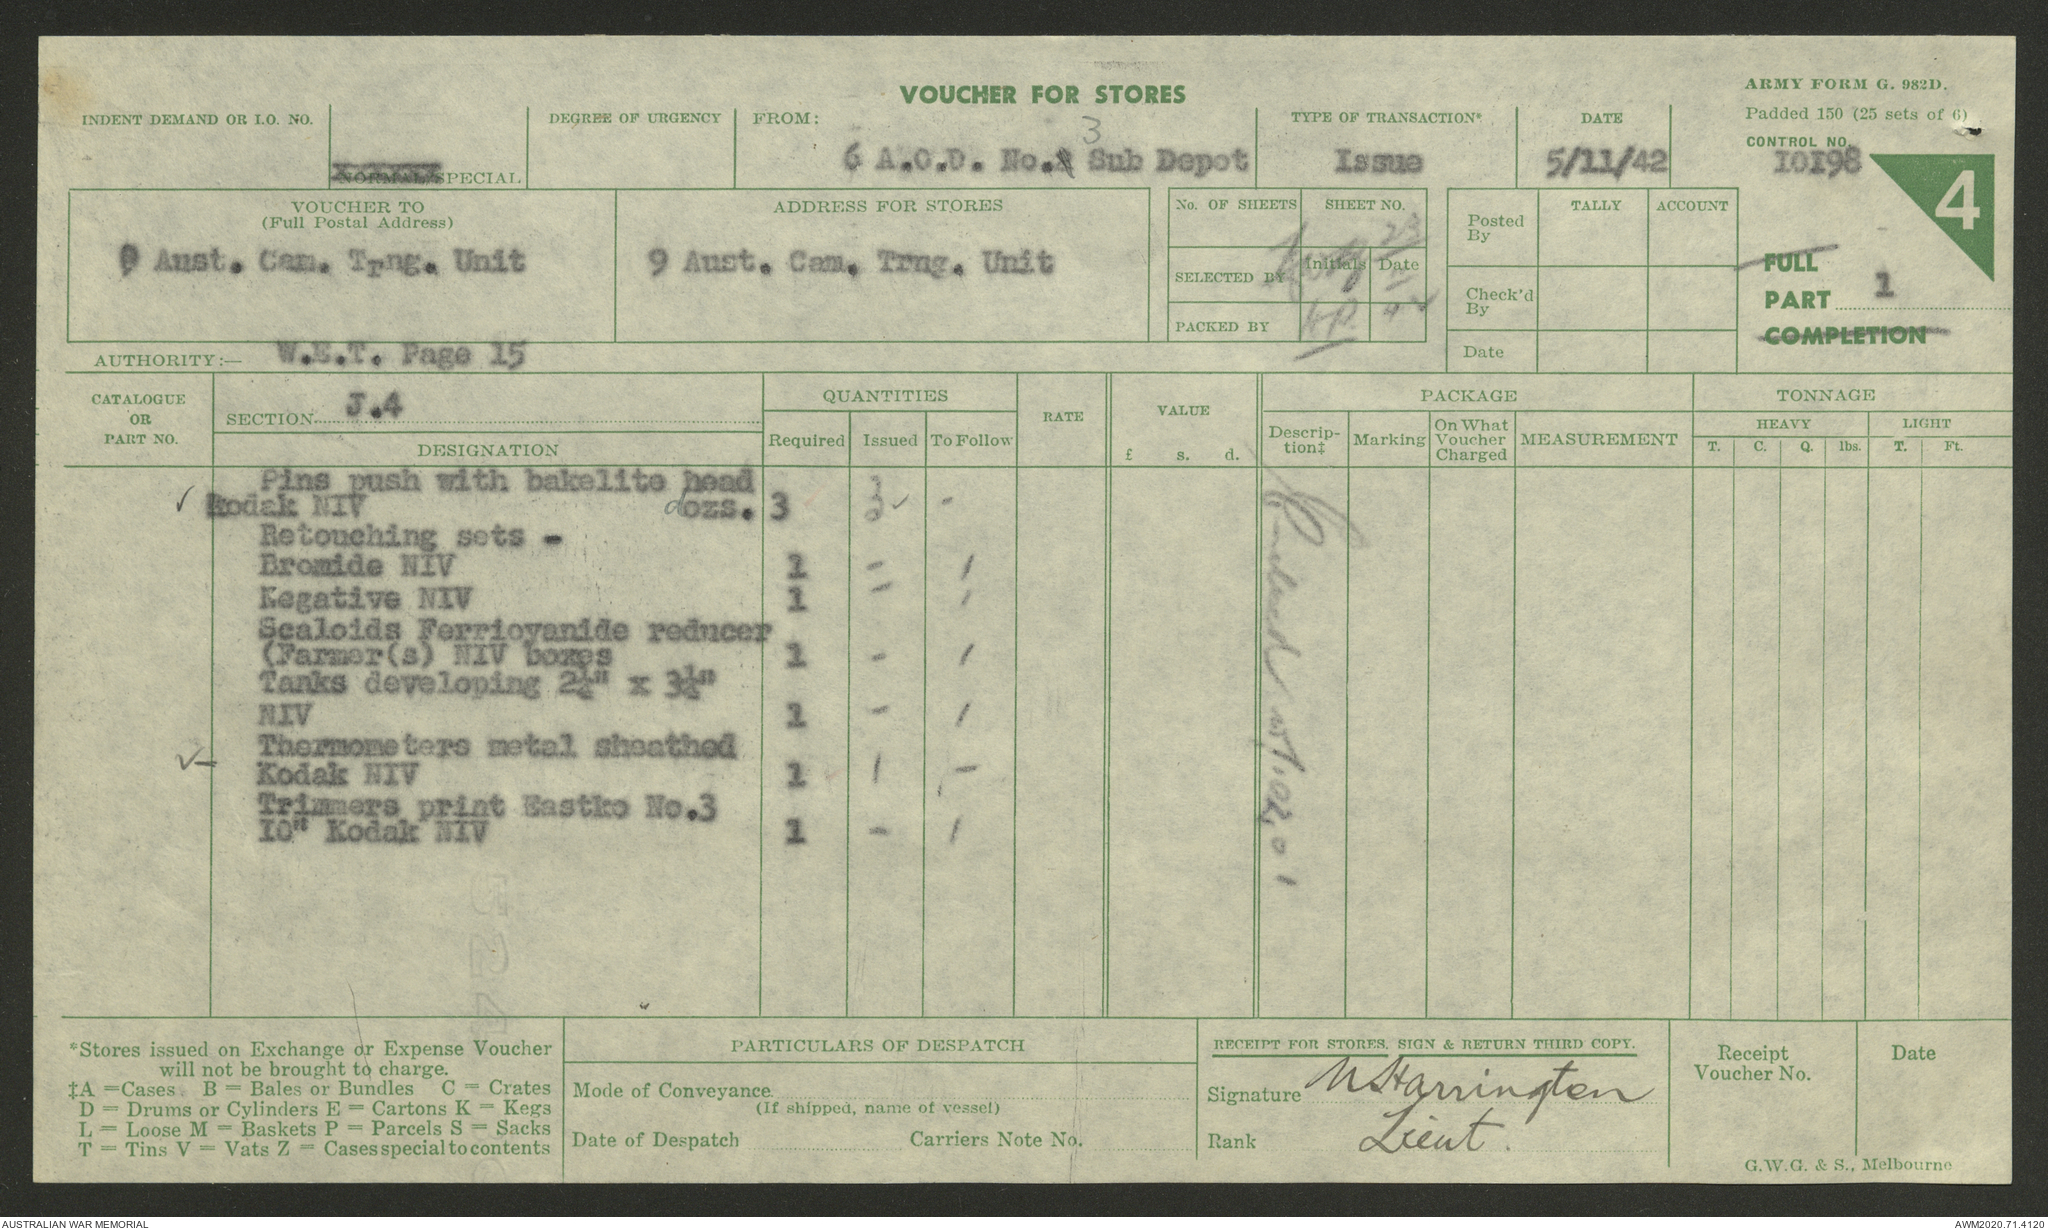 VOUCHER FOR STORES
ARMY FORM G. 982D.
Padded 150 (25 sets of 6)
CONTROL NO.
10198
INDENT DEMAND OR I.O. NO.
NORMAL/SPECIAL
DEGREE OF URGENCY
FROM:
3
6 A.O.D. No. Sub Depot
TYPE OF TRANSACTION*
Issue
DATE
5/11/42
4
VOUCHER TO
(Full Postal Address)
9 Aust. Cam. Trng. Unit
ADDRESS FOR STORES
9 Aust. Cam. Trng. Unit
No. OF SHEETS
SHEET NO.
SELECTED BY
Initials
Date
PACKED BY
Posted By
TALLY
ACCOUNT
Check'd By
Date
FULL
PART 1
COMPLETION
AUTHORITY:— W.E.T. Page 15
CATALOGUE OR PART NO.
SECTION J.4
DESIGNATION
QUANTITIES
Required Issued To Follow
RATE
VALUE
£ s. d.
PACKAGE
Description‡
Marking
On What Voucher Charged
MEASUREMENT
TONNAGE
HEAVY LIGHT
T. C. Q. lbs. T. Ft.
Pins push with bakelite head
✓ Kodak NIV dozs. 3 3 ✓ -
Retouching sets -
Bromide NIV 1 - 1
Negative NIV 1 - 1
Scaloids Ferricyanide reducer
(Farmer(s) NIV boxes 1 - 1
Tanks developing 2¼" x 3¼"
NIV 1 - 1
Thermometers metal sheathed
✓ Kodak NIV 1 1 -
Trimmers print Eastko No.3
10" Kodak NIV 1 - 1
*Stores issued on Exchange or Expense Voucher
will not be brought to charge.
‡A = Cases B = Bales or Bundles C = Crates
D = Drums or Cylinders E = Cartons K = Kegs
L = Loose M = Baskets P = Parcels S = Sacks
T = Tins V = Vats Z = Cases special to contents
PARTICULARS OF DESPATCH
Mode of Conveyance
(If shipped, name of vessel)
Date of Despatch Carriers Note No.
RECEIPT FOR STORES. SIGN & RETURN THIRD COPY.
Signature Harrington
Rank Lieut.
Receipt Voucher No.
Date
G.W.G. & S., Melbourne
AUSTRALIAN WAR MEMORIAL
AWM2020.71.4120